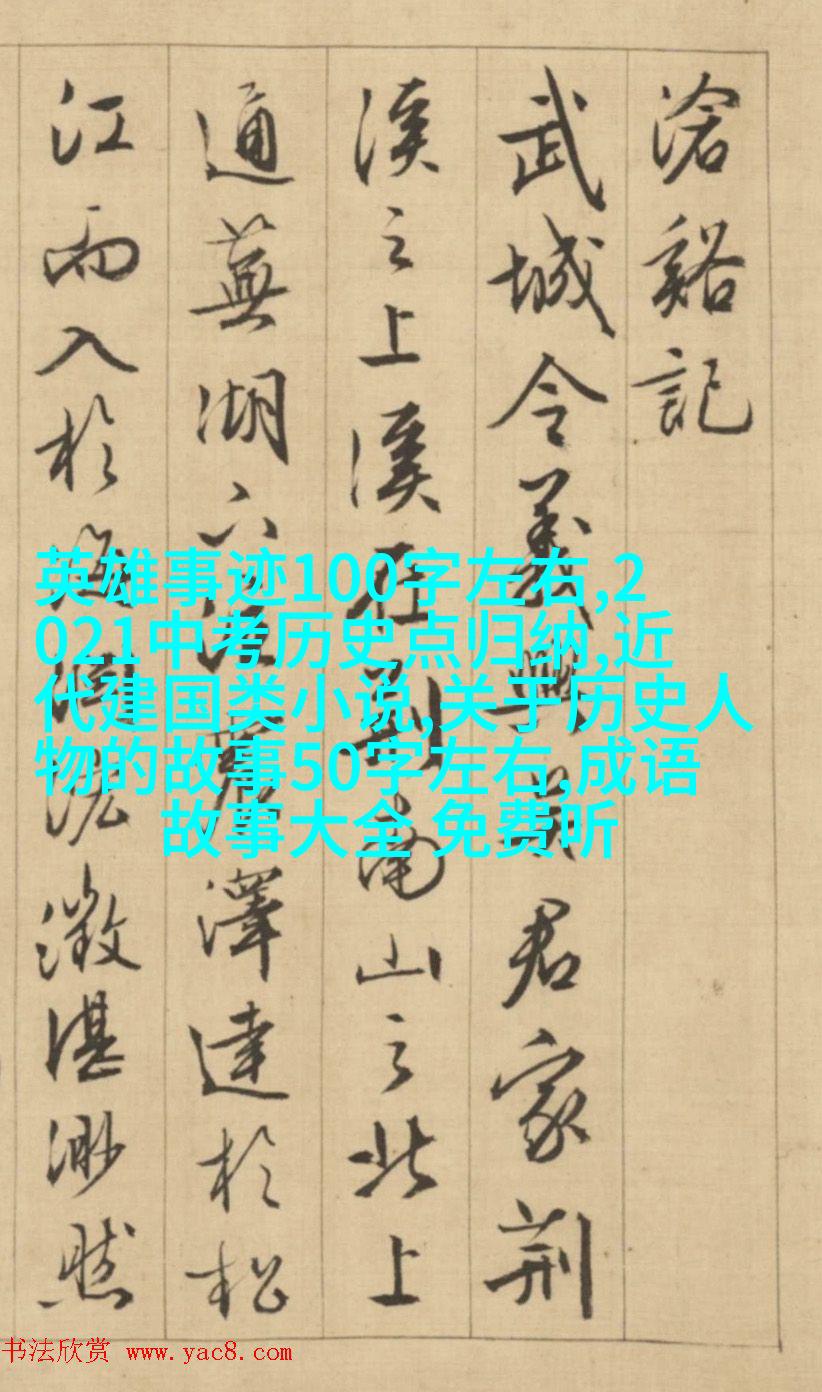 滄谿記
武城令義興吳君家荆
溪之上溪在荆南山之北上
通蕪湖下注震澤達於松
江而入於海澂湛渺然
英雄事迹100字左右,2
021中考历史点归纳,近
代建国类小说,关于历史人
物的故事50字左右,成语
故事大全 免费听
书法欣赏 www.yac8.com